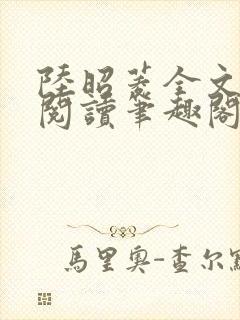 陸昭菱全文
閱讀筆趣閣
馬里奧-查尔